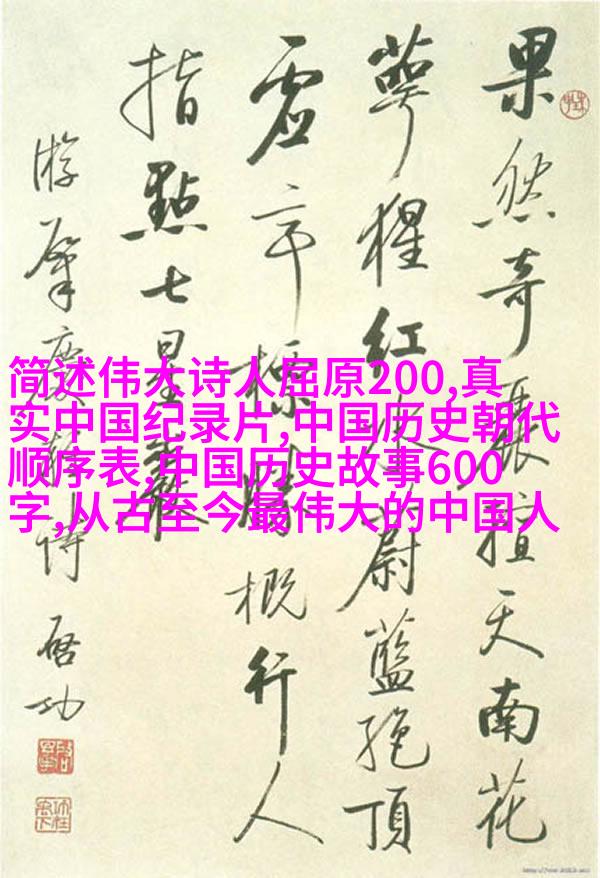 果然奇擅天南花
萼猩红水蔚藍絶頂
虚亭標勝概行人
指點七星巖
游肇慶诗 啓功
简述伟大诗人屈原200,真
实中国纪录片,中国历史朝代
顺序表,中国历史故事600
字,从古至今最伟大的中国人